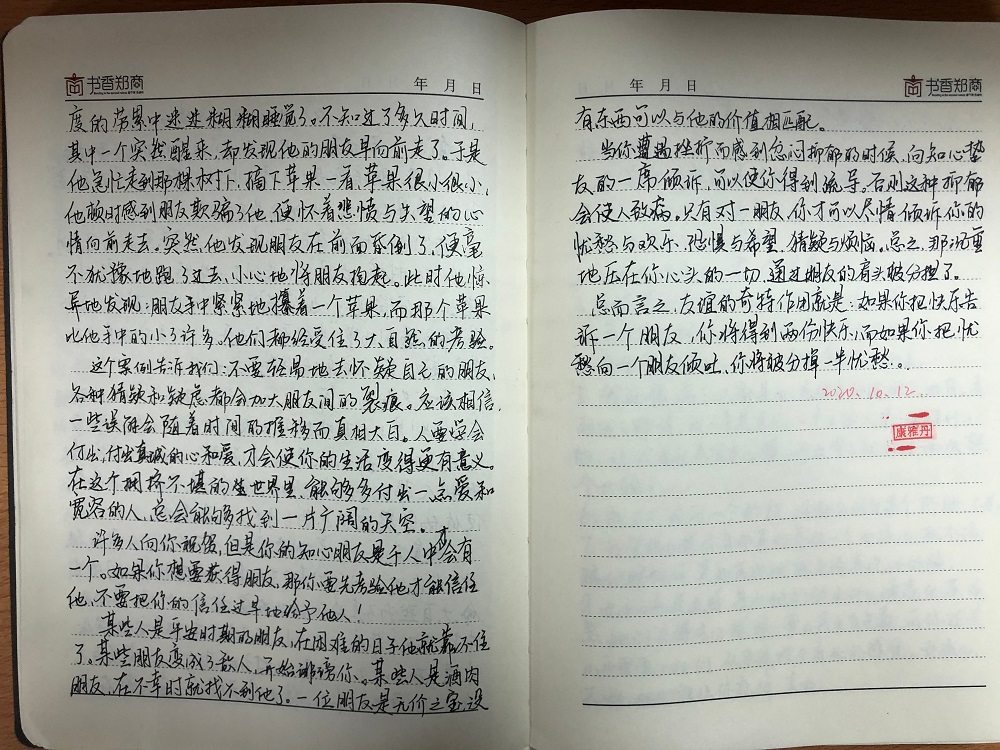 书香郑商
年 月 日
度的劳累中迷迷糊糊睡觉了。不知过了多久时间,
其中一个突然醒来,却发现他的朋友早向前走了。于是
他急忙走到那棵树下,摘下苹果一看,苹果很小很小,
他顿时感到朋友欺骗了他,便怀着悲愤与失望的心
情向前走去。突然他发现朋友在前面昏倒了,便毫
不犹豫地跑了过去,小心地将朋友抱起。此时他惊
异地发现:朋友手中紧紧地攥着一个苹果,而那个苹果
比他手中的小了许多。他们都经受住了大自然的考验。
这个案例告诉我们:不要轻易地去怀疑自己的朋友,
各种猜疑和疑虑都会加大朋友间的裂痕。应该相信,
一些误解会随着时间的推移而真相大白。人要学会
付出,付出真诚的心和爱,才会使你的生活变得更有意义。
在这个拥挤不堪的世界里,能够多付出一点爱和
宽容的人,总会能够找到一片广阔的天空。
许多人向你祝贺,但是你的知心朋友是千人中才会有
一个。如果你想要获得朋友,那你要先考验他才能信任
他,不要把你的信任过早地给予他人!
某些人是平安时期的朋友,在困难的日子他就靠不住
了。某些朋友变成了敌人,开始诽谤你。某些人是酒肉
朋友,在不幸时就找不到他了。一位朋友是无价之宝,没
年 月 日
书香郑商
有东西可以与他的价值相匹配。
当你遭遇挫折而感到忿闷抑郁的时候,向知心挚
友的一席倾诉,可以使你得到疏导。否则这种抑郁
会使人致病。只有对一朋友,你才可以尽情倾诉你的
忧愁与欢乐、恐惧与希望、猜疑与烦恼。总之,那沉重
地压在你心头的一切,通过朋友的肩头被分担了。
总而言之,友谊的奇特作用就是:如果你把快乐告
诉一个朋友,你将得到两份快乐,而如果你把忧
愁向一个朋友倾吐,你将被分掉一半忧愁。
2020.10.12.
康雅丹